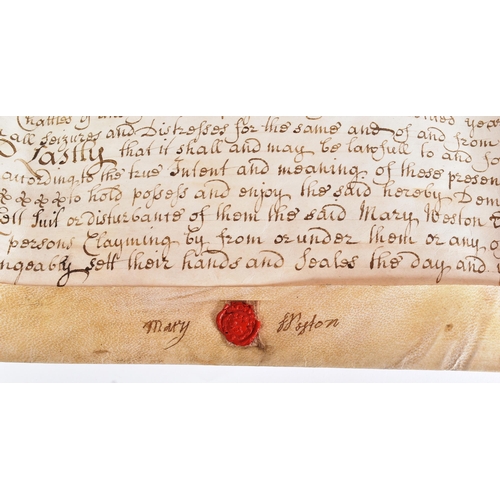 Chattles
all Seizures and Distresses for the same and of and from
Lastly that it shall and may be lawfull to and for
according to the true Intent and meaning of these presen
to hold possess and enjoy the said hereby Dem
Lett Suit or disturbante of them the said Mary Weston
persons Clayming by from or under them or any
ngeably sett their hands and Seales the day and
Mary Weston